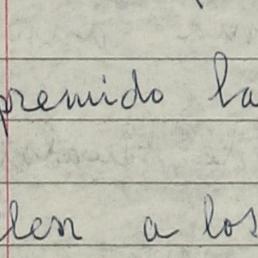 premido la
llen a los